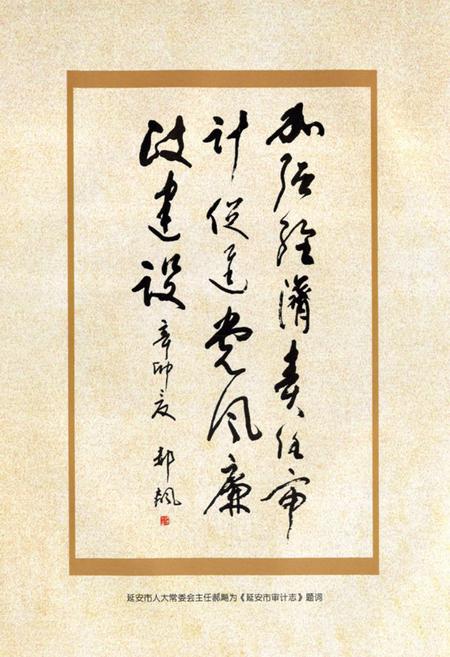 加强经济责任审
计促进党风廉
政建设
辛卯夏 郝飚
延安市人大常委会主任郝飚为《延安市审计志》题词